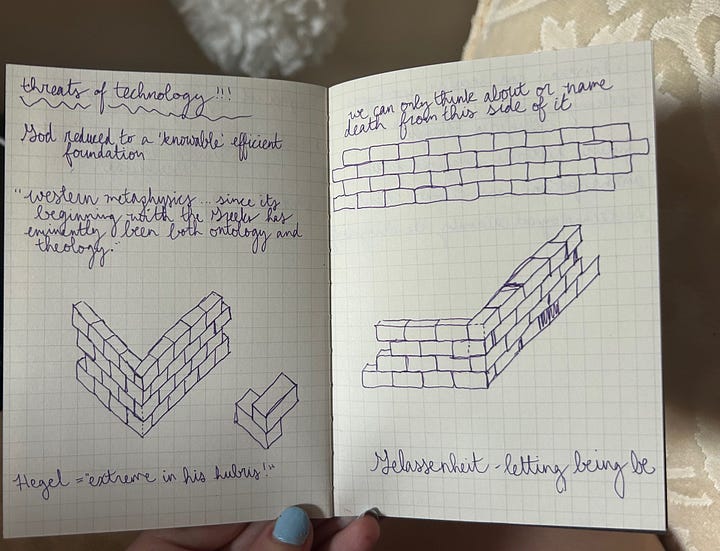 threats of technology !!!
God reduced to a 'knowable' efficient
foundation
"western metaphysics ... since its
beginning with the Greeks has
eminently been both ontology and
theology."
Hegel = "extreme in his hubris!"
we can only think about or name
death from this side of it
Gelassenheit - letting being be